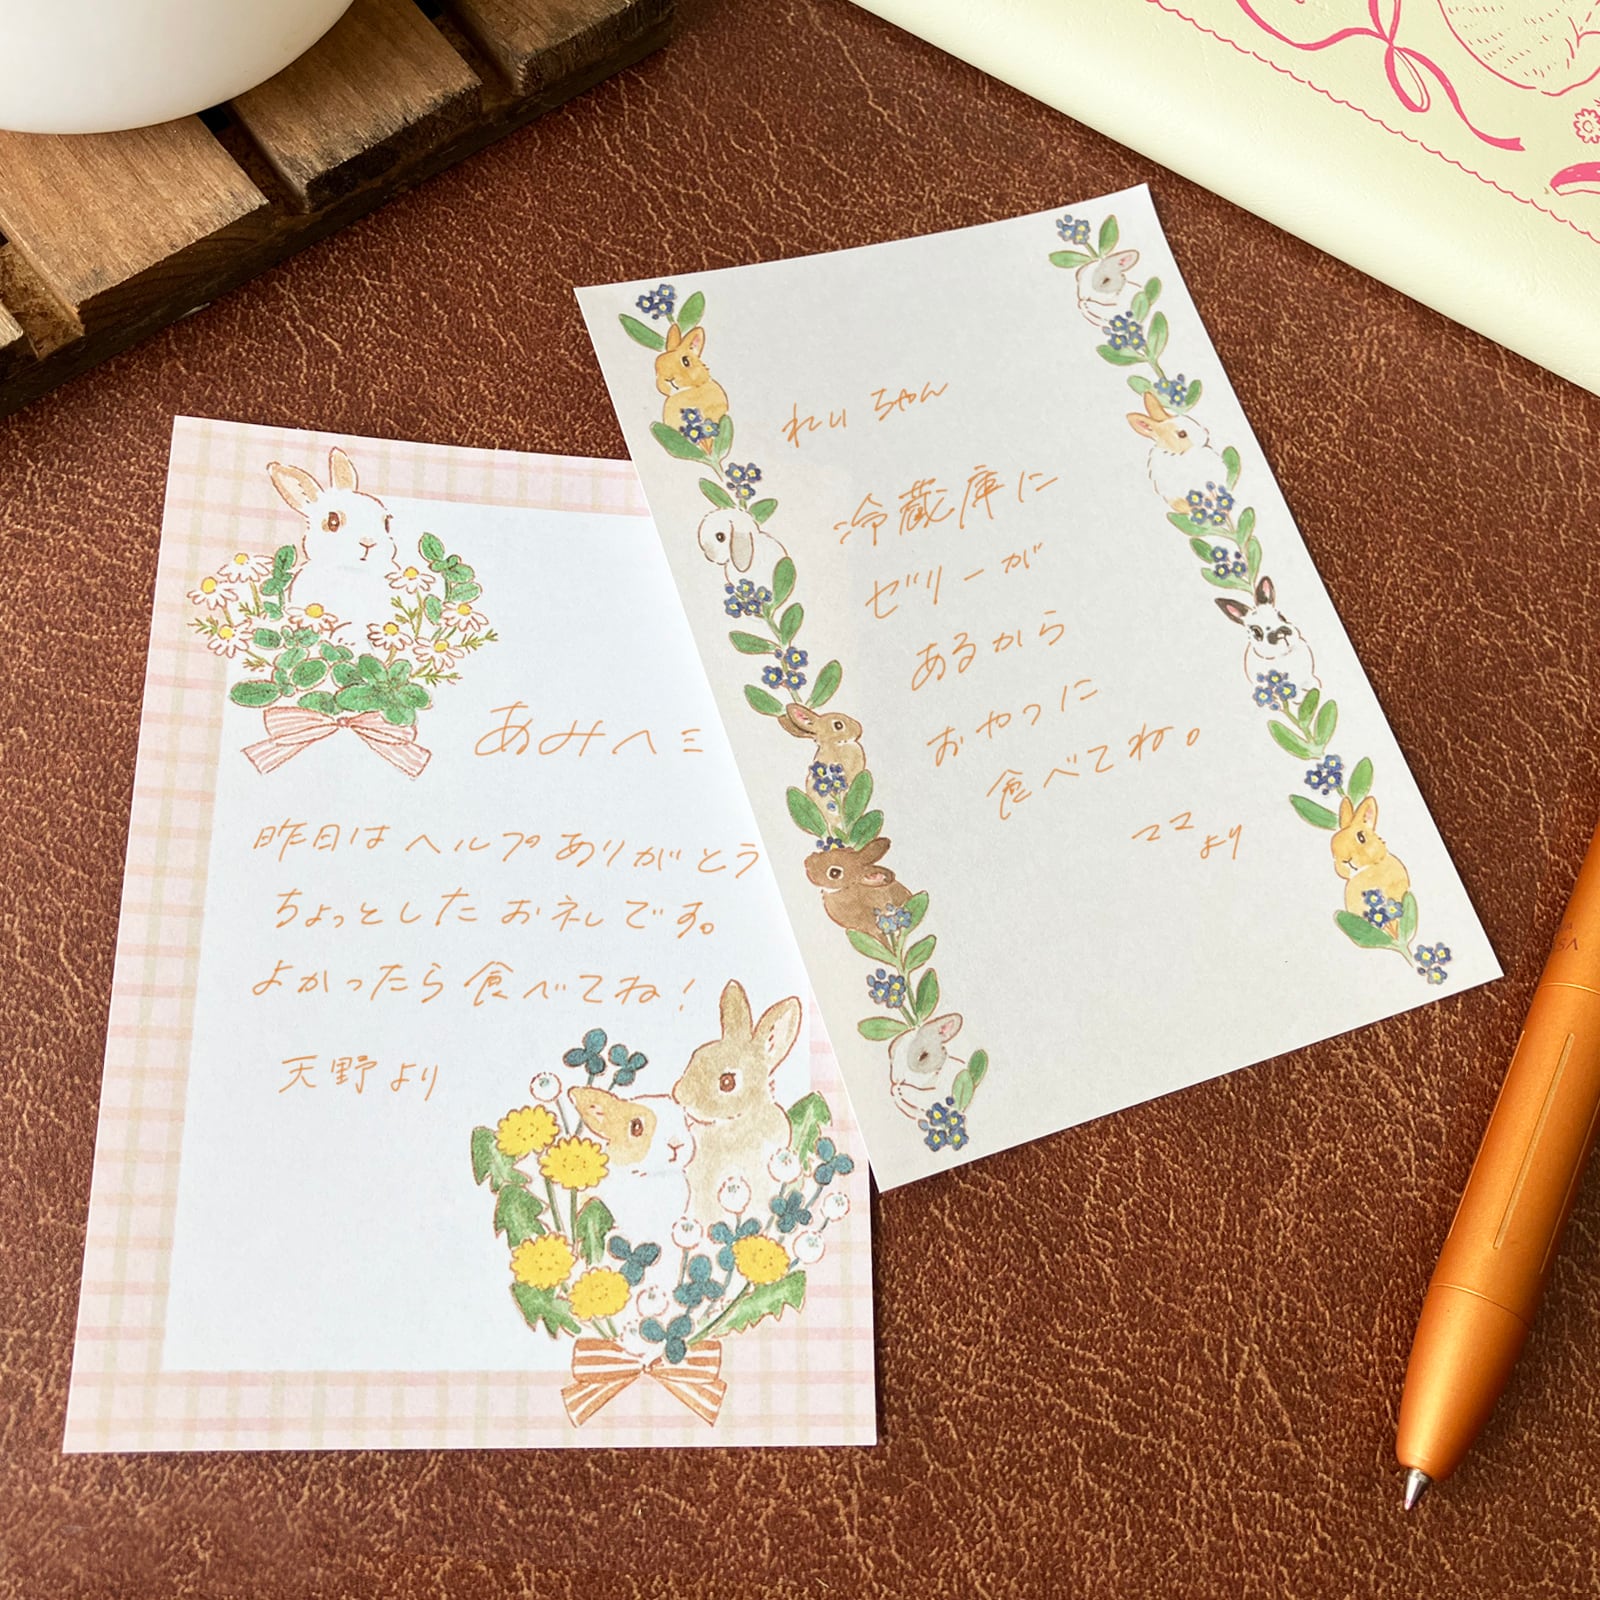 あみへ ミ
昨日は ヘルプ ありがとう
ちょっとした お礼です。
よかったら 食べてね!
天野より
れいちゃん
冷蔵庫に
ゼリーが
あるから
おやつに
食べてね。
ママ
より